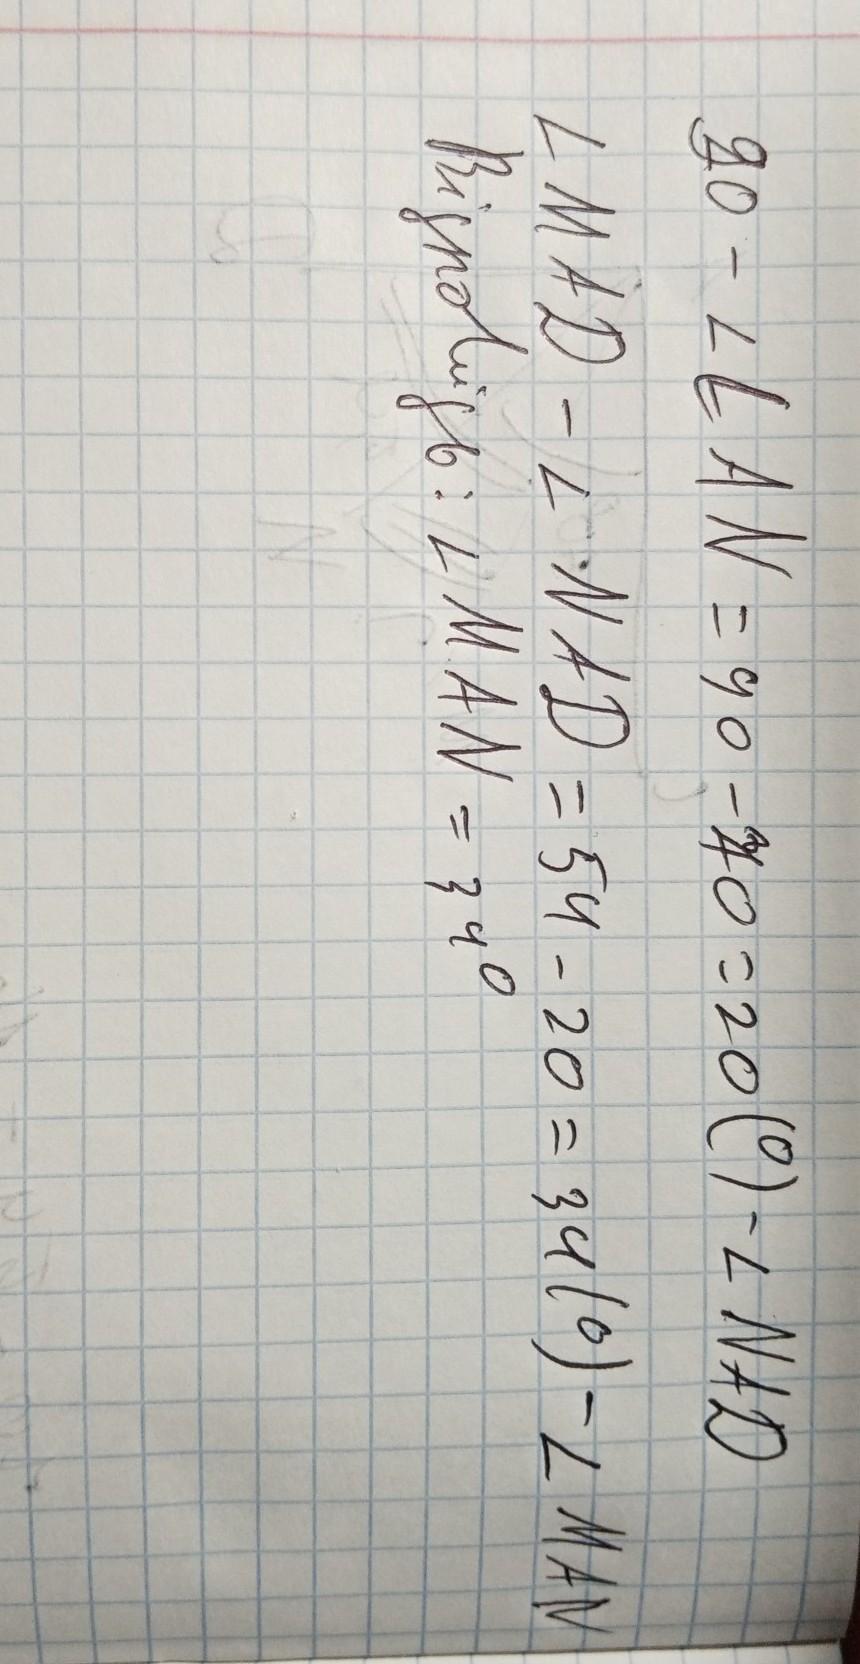 90 - ∠LAN = 90 - 70 = 20(°) - ∠NAD
∠MAD - ∠NAD = 54 - 20 = 34(°) - ∠MAN
Відповідь: ∠MAN = 34°